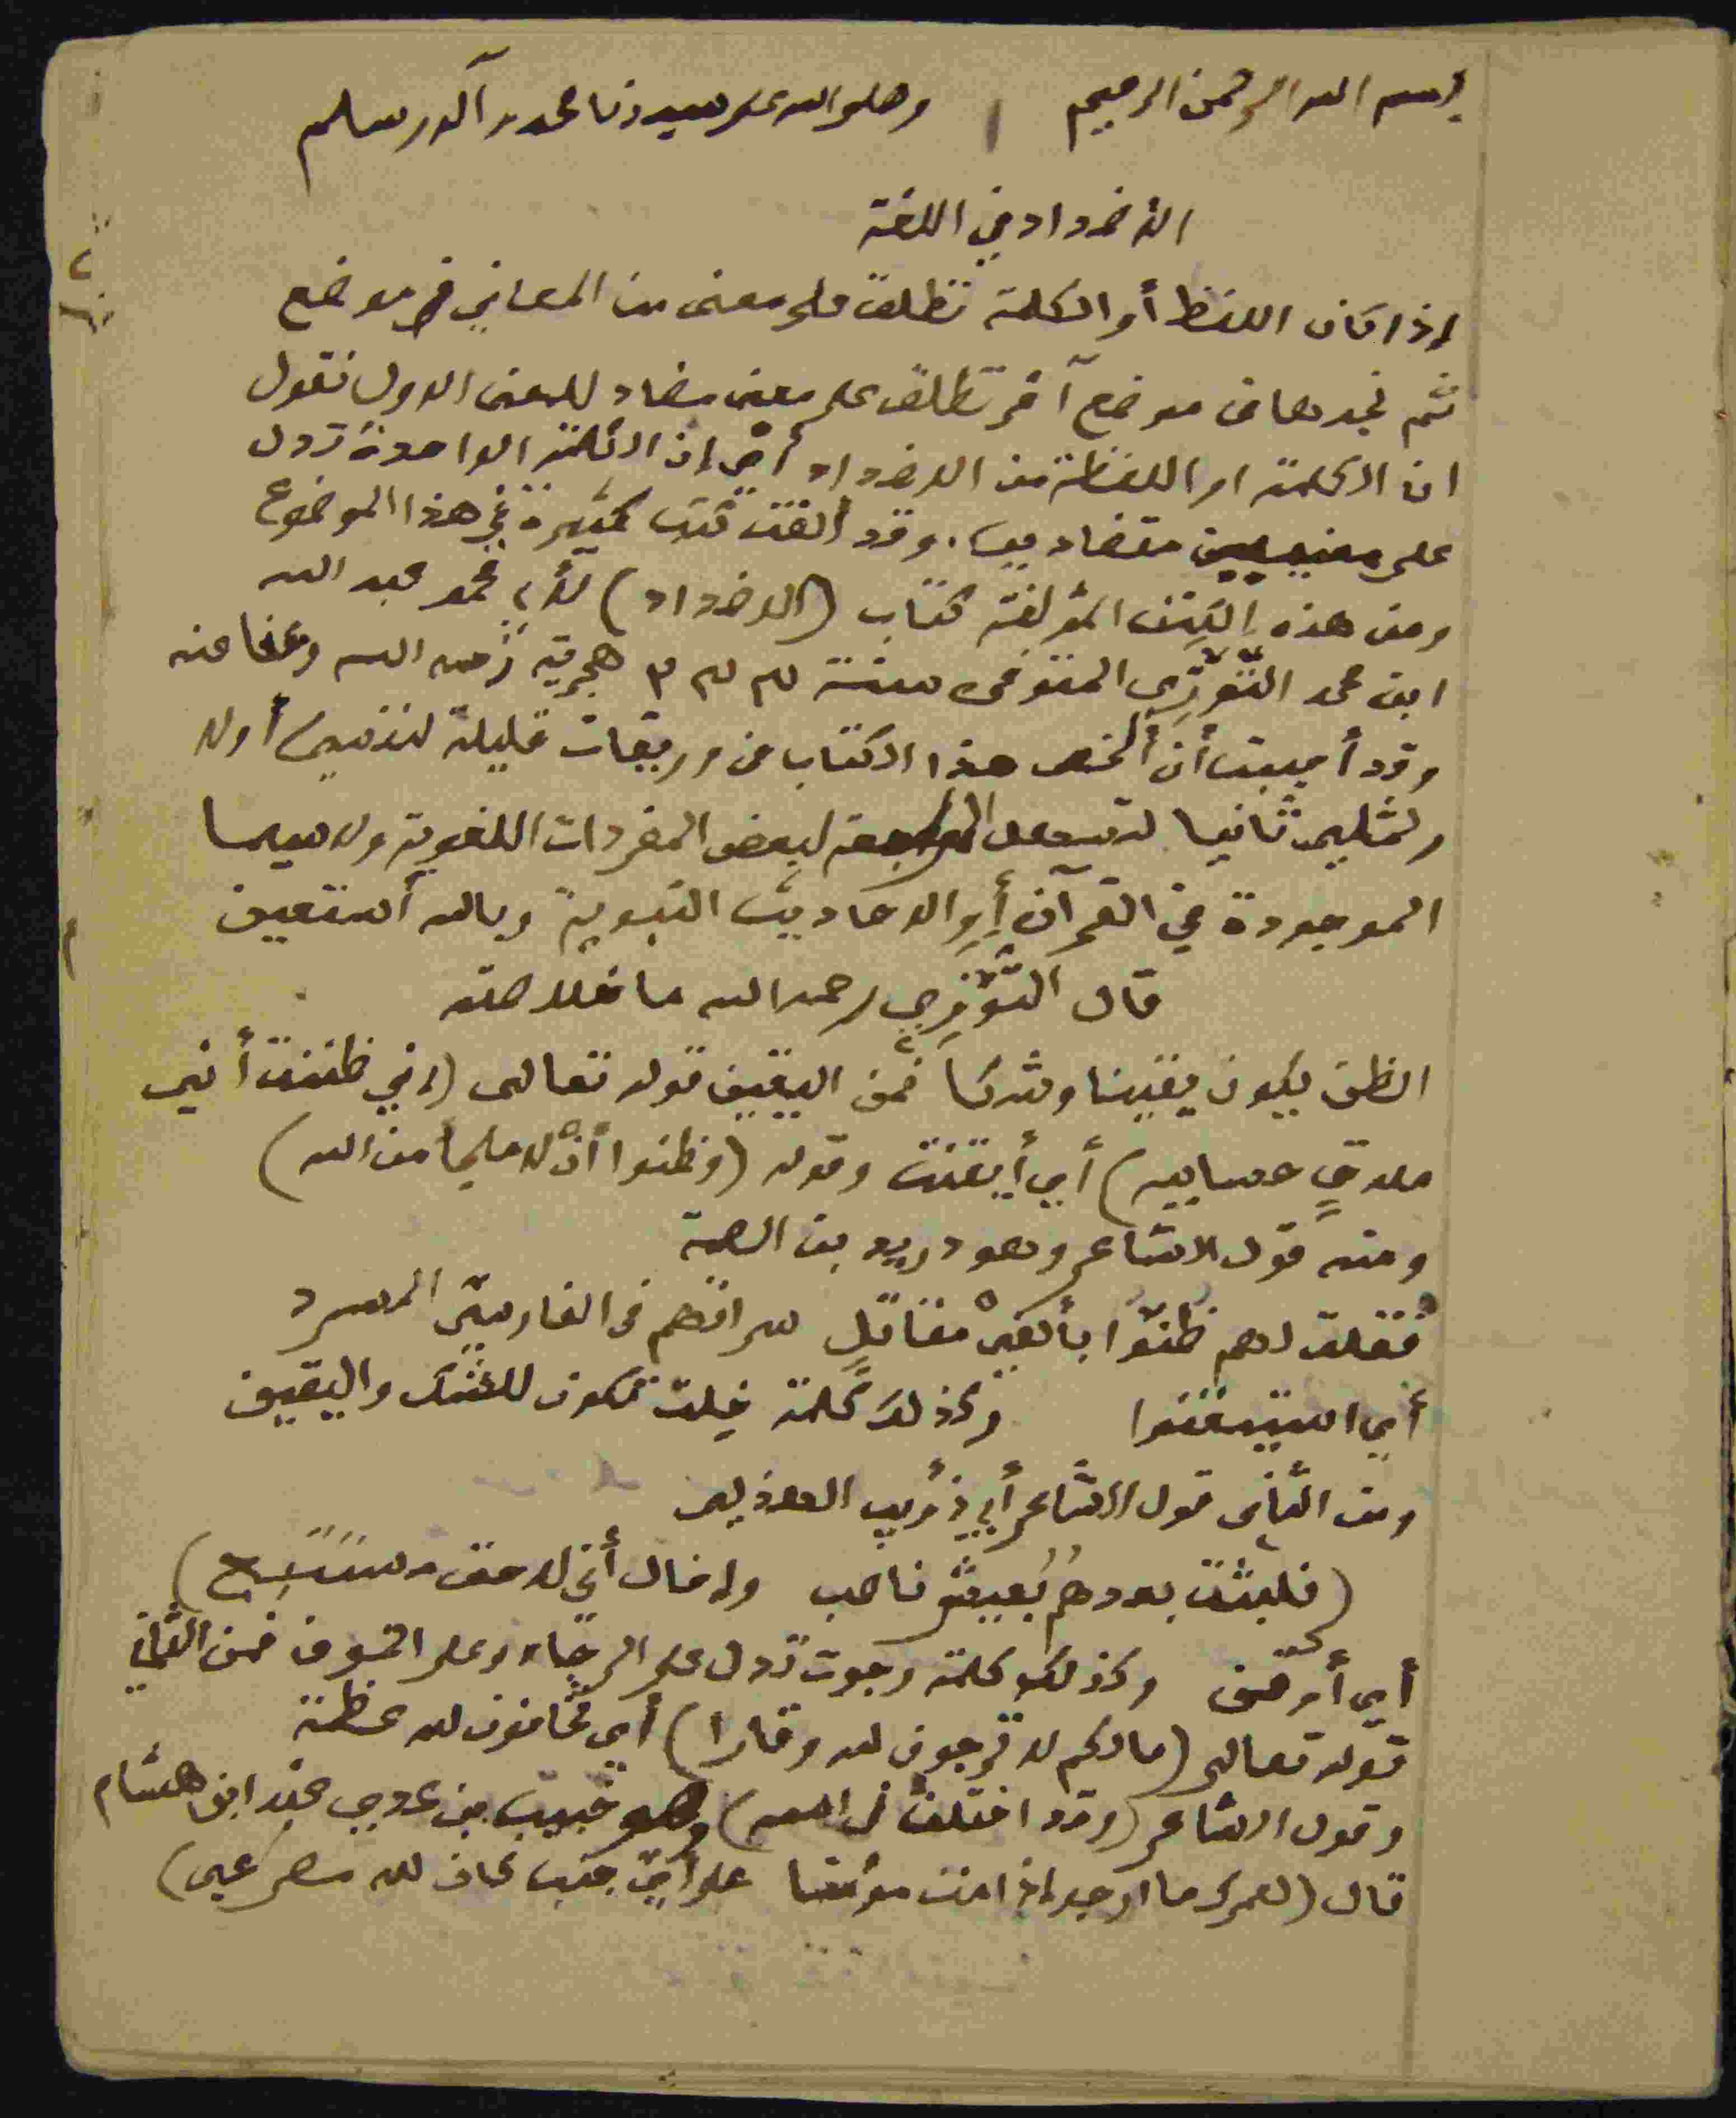 بسم الله الرحمن الرحيم وصلى الله على سيدنا محمد وآله وسلم
الأضداد في اللغة
إذا كان اللفظ أو الكلمة تطلق على معنى من المعاني في موضع
ثم نجدها في موضع آخر تطلق على معنى مضاد للمعنى الاول فنقول
ان الكلمة او اللفظة من الاضداد أي إن الكلمة الواحدة تدل
على معنيين متضادين. وقد ألفت كتب كثيرة في هذا الموضوع
ومن هذه الكتب المؤلفة كتاب (الاضداد) لأبي محمد عبد الله
ابن محمد التَّوَّزي المتوفى سنة ٢٣٣ هجرية رحمه الله وعفا عنه
وقد أحببت أن ألخص هذا الكتاب في وريقات قليلة لنفسي أولا
ولمثلي ثانيا لتسهل المراجعة لبعض المفردات اللغوية ولا سيما
الموجودة في القرآن أو الاحاديث النبوية وبالله أستعين
قال التَّوَّزي رحمه الله ما خلاصته
الظن يكون يقينا وشكا فمن اليقين قوله تعالى (إني ظننت أني
ملاقٍ حسابيه) أي أيقنت وقوله (وظنوا أنْ لا ملجأ من الله)
ومنه قول الشاعر وهو دريد بن الصمة
فقلت لهم ظنّوا بألفيْ مقاتلٍ سراتهم في الفارسيّ المسرد
أي استيقنوا وكذلك كلمة خلت تكون للشك واليقين
ومن الثاني قول الشاعر أبي ذؤيب الهذلي
(فلبثت بعدهم بعيش ناصب وإخال أني لاحق مستتبع)
أي أوقن وكذلك كلمة رجوت تدل على الرجاء وعلى الخوف فمن الثاني
قوله تعالى (مالكم لا ترجون لله وقارا) أي تخافون لله عظمة
وقول الشاعر (وقد اختلف في اسمه) وهو خبيب بن عدي عند ابن هشام
قال (لعمرك ما ارجو إذا مت مؤمنا على أيّ جنب كان لله مصرعي)